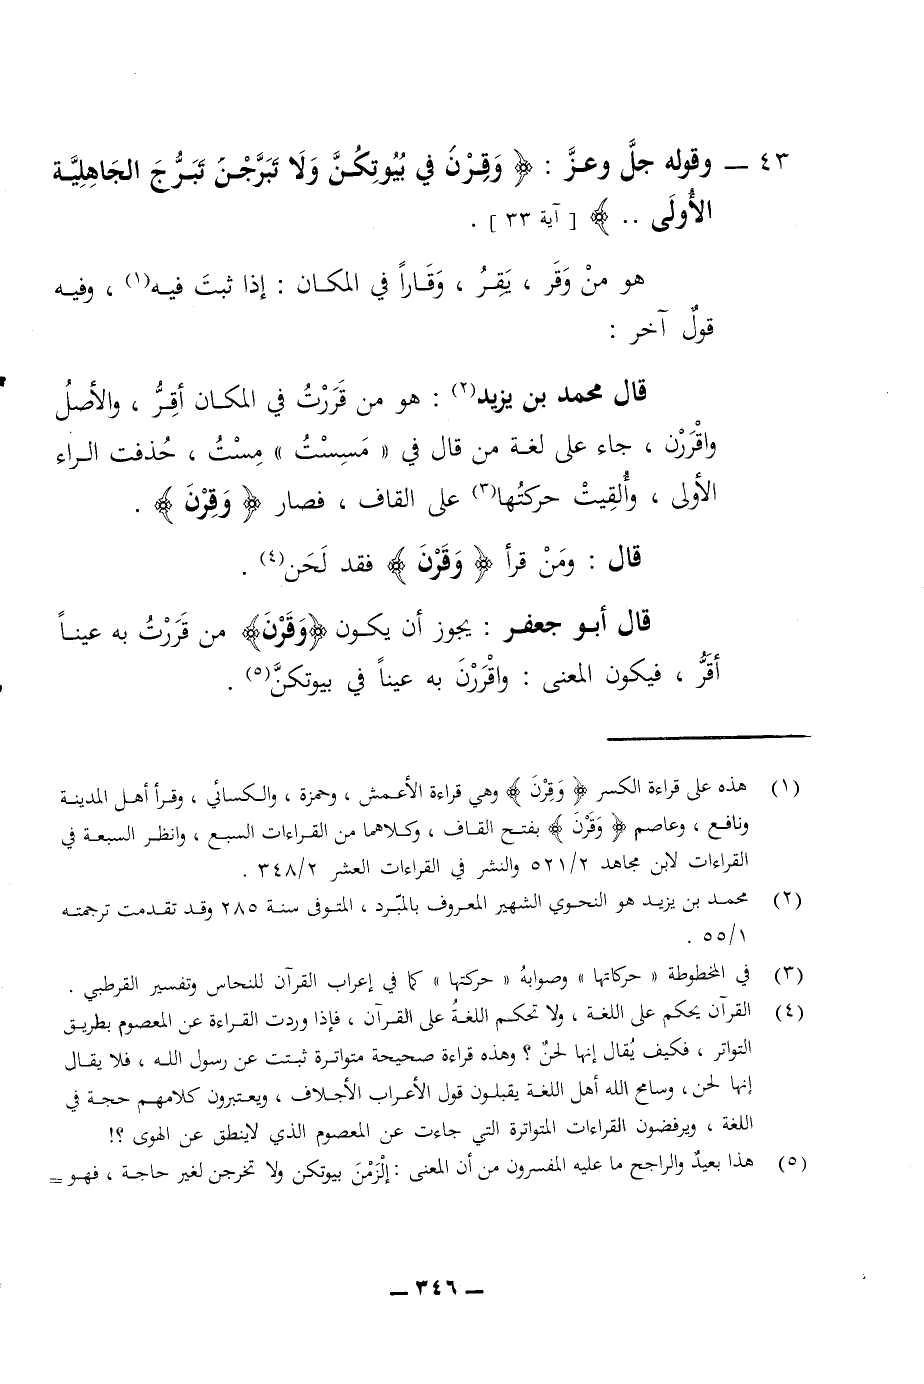 ٤٣ ــ وقوله جلَّ وعزَّ : ﴿ وَقِرْنَ فِي بُيُوتِكُنَّ وَلَا تَبَرَّجْنَ تَبَرُّجَ الجَاهِلِيَّةِ
الأُولَى .. ﴾ [ آية ٣٣ ] .
هو منْ وَقَر ، يَقِرُ ، وَقَاراً في المكان : إذا ثبتَ فيه(١) ، وفيه
قولٌ آخر :
قال محمد بن يزيد(٢) : هو من قَرَرْتُ في المكان أقِرُّ ، والأصلُ
واقْرَرْن ، جاء على لغة من قال في « مَسِسْتُ » مِسْتُ ، حُذفت الراء
الأولى ، وأُلقِيتْ حركتُها(٣) على القاف ، فصار ﴿ وَقِرْنَ ﴾ .
قال : ومَنْ قرأ ﴿ وَقَرْنَ ﴾ فقد لَحَن(٤) .
قال أبو جعفر : يجوز أن يكون ﴿وَقَرْنَ﴾ من قَرَرْتُ به عيناً
أقَرُّ ، فيكون المعنى : واقْرَرْنَ به عيناً في بيوتكنَّ(٥) .
(١) هذه على قراءة الكسر ﴿ وَقِرْنَ ﴾ وهي قراءة الأعمش ، وحمزة ، والكسائي ، وقرأ أهل المدينة
ونافع ، وعاصم ﴿ وَقَرْنَ ﴾ بفتح القاف ، وكلاهما من القراءات السبع ، وانظر السبعة في
القراءات لابن مجاهد ٥٢١/٢ والنشر في القراءات العشر ٣٤٨/٢ .
(٢) محمد بن يزيد هو النحوي الشهير المعروف بالمبّرد ، المتوفى سنة ٢٨٥ وقد تقدمت ترجمته
٥٥/١ .
(٣) في المخطوطة « حركاتها » وصوابهُ « حركتها » كما في إعراب القرآن للنحاس وتفسير القرطبي .
(٤) القرآن يحكم على اللغة ، ولا تحكم اللغةُ على القرآن ، فإذا وردت القراءة عن المعصوم بطريق
التواتر ، فكيف يُقال إنها لحنٌ ؟ وهذه قراءة صحيحة متواترة ثبتت عن رسول الله ، فلا يقال
إنها لحن، وسامح الله أهل اللغة يقبلون قول الأعراب الأجلاف ، ويعتبرون كلامهم حجة في
اللغة ، ويرفضون القراءات المتواترة التي جاءت عن المعصوم الذي لاينطق عن الهوى ؟!
(٥) هذا بعيدٌ والراجح ما عليه المفسرون من أن المعنى : إلْزَمْنَ بيوتكن ولا تخرجن لغير حاجة ، فهو =
ــ ٣٤٦ ــ